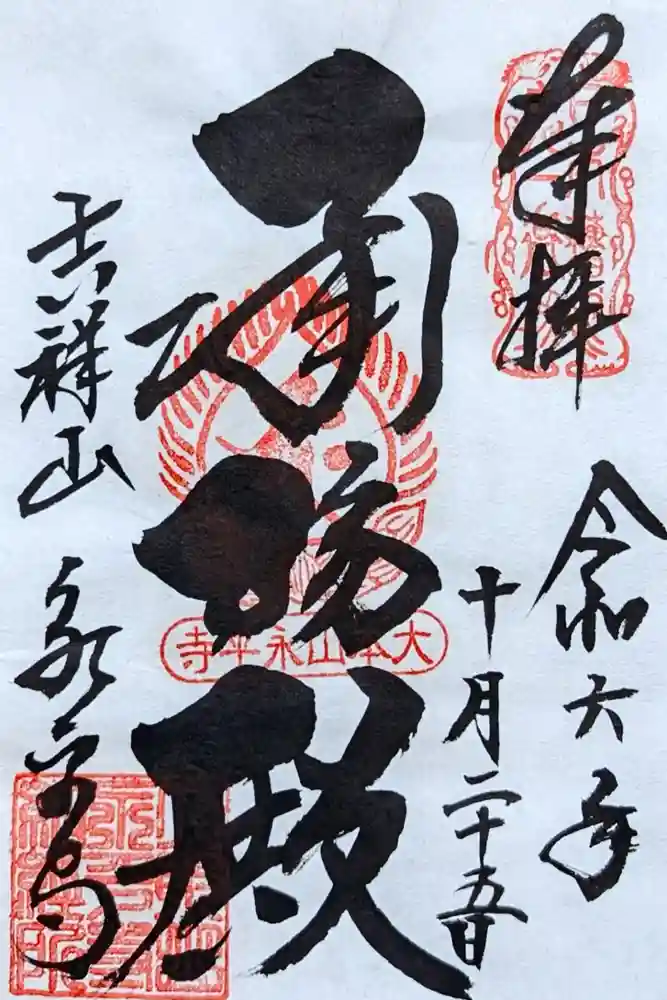 奉拝
令和六年
十月二十五日
承陽殿
大本山永平寺
吉祥山
永平寺